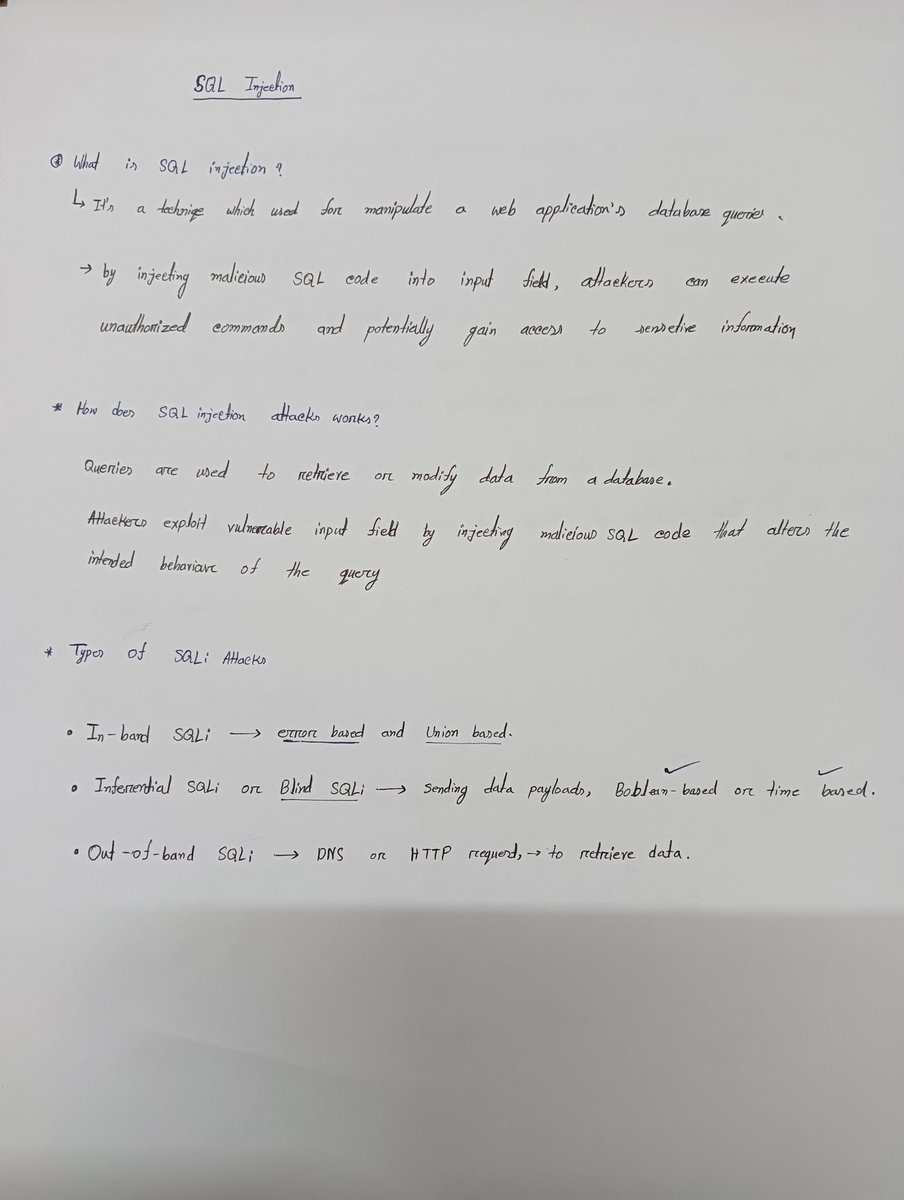 SQL Injection
What is SQL injection?
↳ It's a techniqe which used for manipulate a web application's database queries.
→ by injecting malicious SQL code into input field, attackers can execute
unauthorized commands and potentially gain access to sensetive information
* How does SQL injection attacks works?
Queries are used to retrieve or modify data from a database.
Attackers exploit vulnerable input field by injecting malicious SQL code that alters the
intended behaviour of the query
* Types of SQLi Attacks
• In-band SQLi → error based and Union based.
• Inferential SQLi or Blind SQLi → sending data payloads, Boolean-based or time based.
• Out-of-band SQLi → DNS or HTTP request, → to retrieve data.